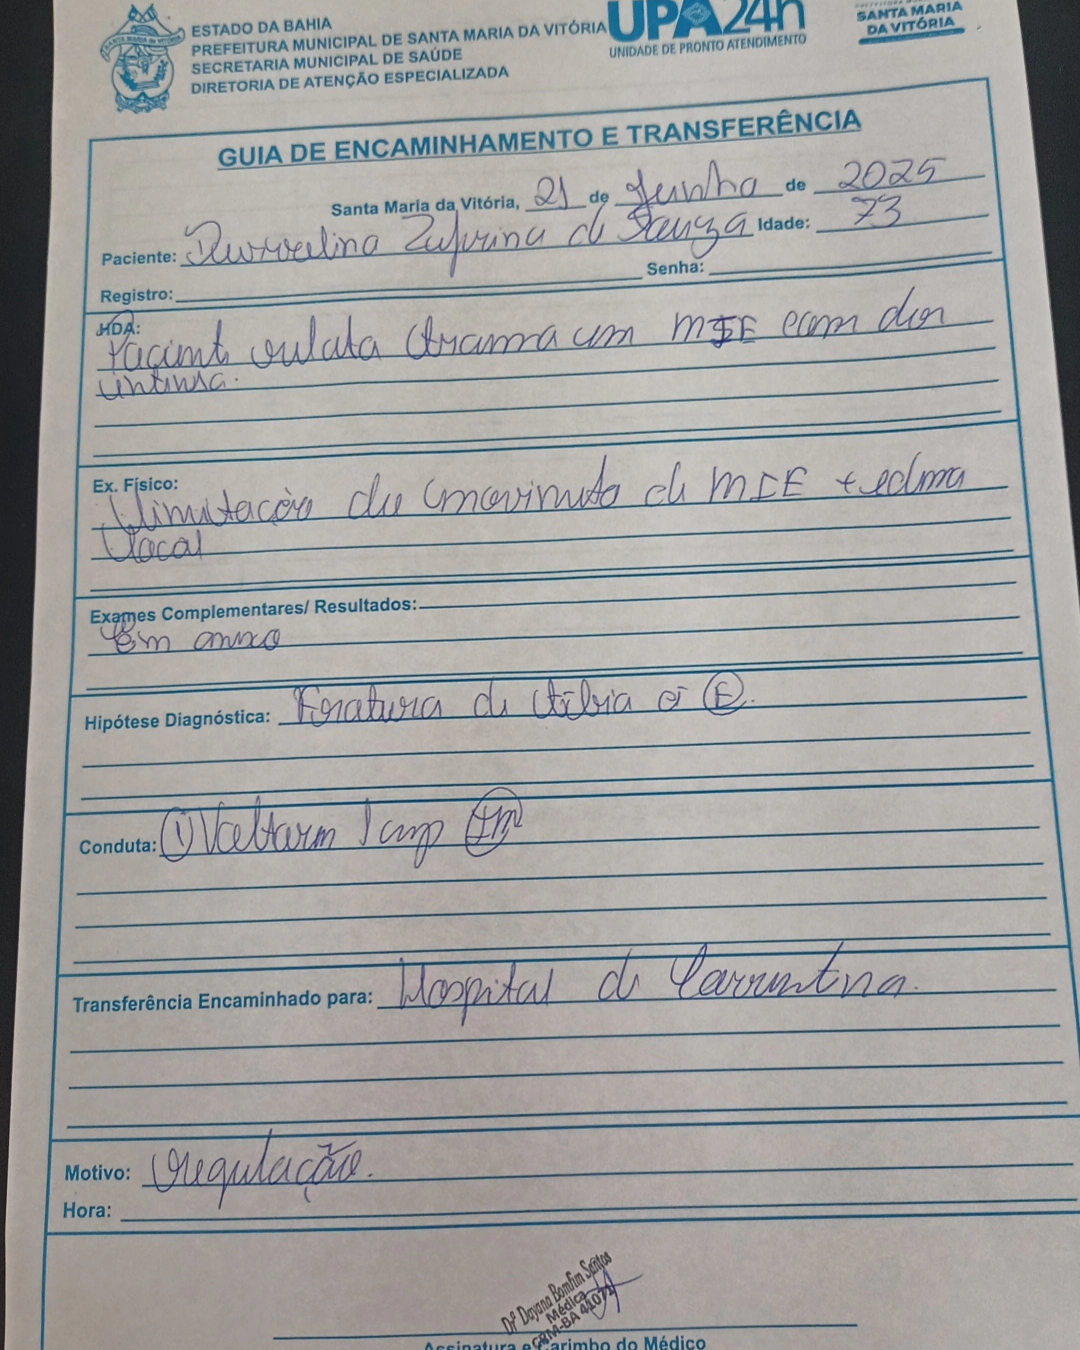 ESTADO DA BAHIA
PREFEITURA MUNICIPAL DE SANTA MARIA DA VITÓRIA
SECRETARIA MUNICIPAL DE SAÚDE
DIRETORIA DE ATENÇÃO ESPECIALIZADA
UPA 24h
UNIDADE DE PRONTO ATENDIMENTO
SANTA MARIA
DA VITÓRIA
GUIA DE ENCAMINHAMENTO E TRANSFERÊNCIA
Santa Maria da Vitória, 21 de Junho de 2025
Paciente: Durvalina Zefirina de Souza Idade: 73
Registro: Senha:
HDA:
Paciente relata trauma em MIE com dor
intensa.
Ex. Físico:
Limitação de movimento de MIE + edema
local
Exames Complementares/ Resultados:
Em anexo
Hipótese Diagnóstica: Fratura de tibia á E.
Conduta: 1) Voltarem 1 amp IM
Transferência Encaminhado para: Hospital de Correntina.
Motivo: regulação.
Hora:
Drª Dayana Bomfim Santos
Médica
CRM-BA 41071
Assinatura e Carimbo do Médico